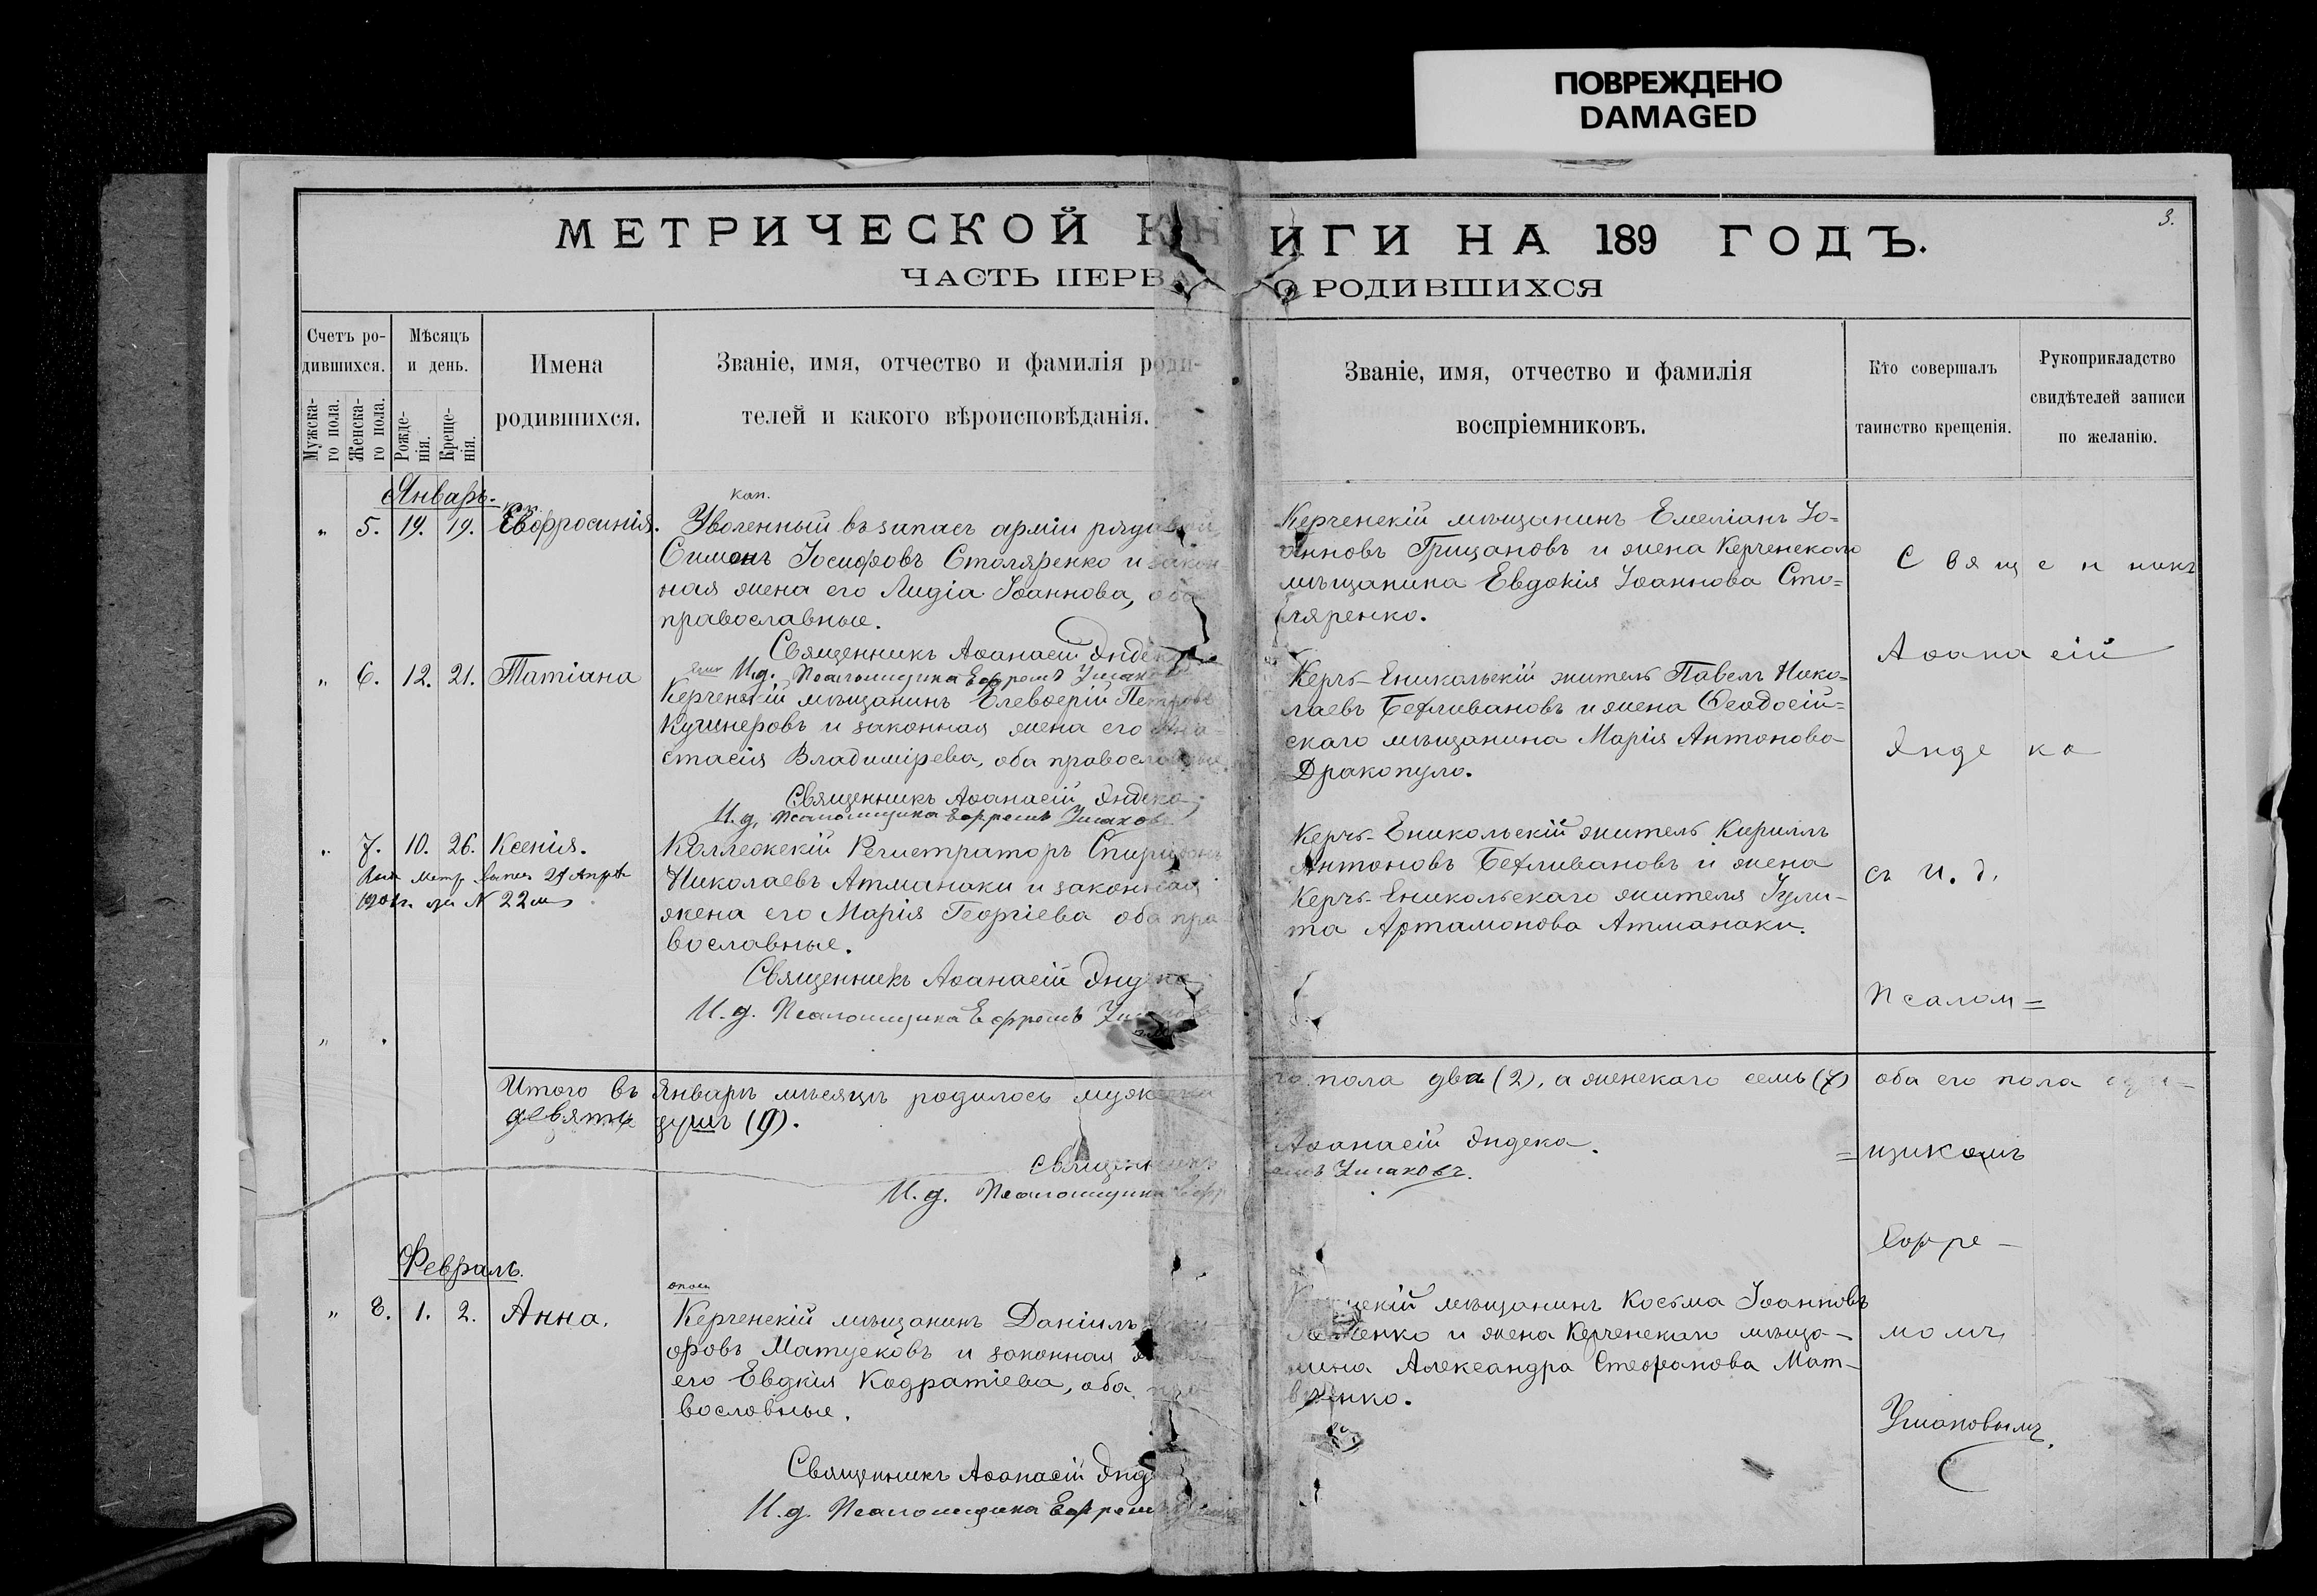 ПОВРЕЖДЕНО
DAMAGED
3.
МЕТРИЧЕСКОЙ КНИГИ НА 189 ГОДЪ.
ЧАСТЬ ПЕРВАЯ О РОДИВШИХСЯ
Счетъ ро-
дившихся.
Мужска-
го пола.
Женска-
го пола.
Мѣсяцъ
и день.
Рожде-
нія.
Креще-
нія.
Имена
родившихся.
Званіе, имя, отчество и фамилія роди-
телей и какого вѣроисповѣданія.
Званіе, имя, отчество и фамилія
воспріемниковъ.
Кто совершалъ
таинство крещенія.
Рукоприкладство
свидѣтелей записи
по желанію.
Январь.
" 5. 19. 19. Евфросинія.
Уволенный въ запасъ арміи рядовой
Симонъ Іосифовъ Столяренко и закон
ная жена его Лидіа Іоаннова, оба
православные.
Священникъ Аѳанасій Эндека
И.д. Псаломщика Ефремъ Ушаковъ
Керченскій мѣщанинъ Емеліанъ Іо=
анновъ Грицановъ и жена Керченскаго
мѣщанина Евдокія Іоаннова Сто=
ляренко.
" 6. 12. 21. Татіана
Керченскій мѣщанинъ Елевѳерій Петровъ
Кушнеровъ и законная жена его Ана-
стасія Владимірева, оба православные.
Священникъ Аѳанасій Эндека
И.д. Псаломщика Ефремъ Ушаковъ
Керчь-Еникольскій житель Павелъ Нико-
лаевъ Бехливановъ и жена Ѳеодосій=
скаго мѣщанина Марія Антонова
Дракопуло.
" 7. 10. 26. Ксенія.
Коллежскій Регистраторъ Спиридонъ
Николаевъ Атманаки и законная
жена его Марія Георгіева оба пра-
вославные.
Священникъ Аѳанасій Эндека
И.д. Псаломщика Ефремъ Ушаковъ
Керчь-Еникольскій житель Кириллъ
Антоновъ Бехливановъ и жена
Керчь-Еникольскаго жителя Іули-
та Артамонова Атманаки.
Итого въ Январѣ мѣсяцѣ родилось мужска
го пола два (2), а женскаго семь (7) оба его пола
девять душъ (9).
Священникъ Аѳанасій Эндека.
И.д. Псаломщика Ефремъ Ушаковъ.
Февраль.
" 8. 1. 2. Анна.
Керченскій мѣщанинъ Даніилъ
оровъ Матуековъ и законная жена
его Евдкія Кодратіева, оба пра
вославные.
Священникъ Аѳанасій Энд
И.д. Псаломщика Ефремъ
мѣщанинъ Косьма Іоанновъ
и жена Керченскаго мѣща-
нина Александра Стефанова Мат-
Священникъ
Аѳанасій
Эндека
съ И.д.
Псалом=
=щикомъ
Ефре-
момъ
Ушаковымъ.